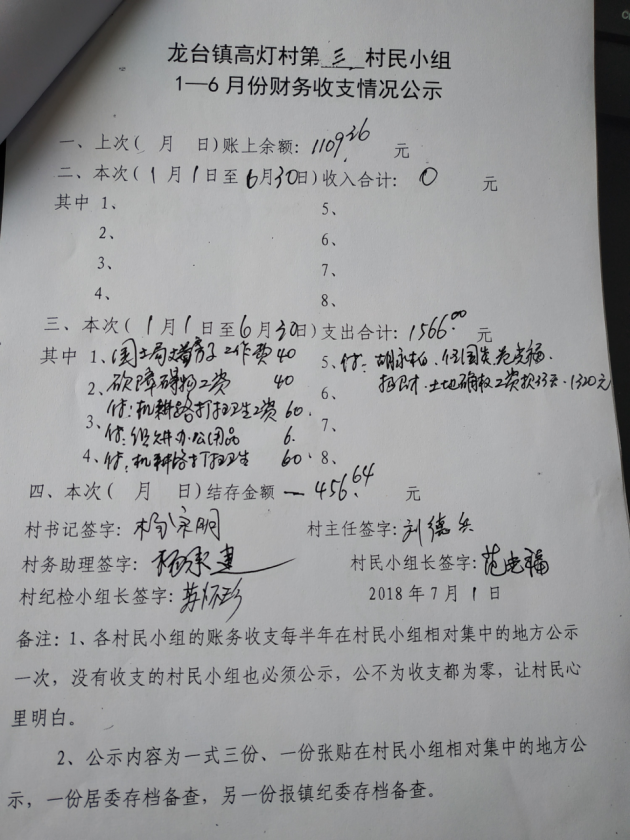 龙台镇高灯村第 三 村民小组
1—6月份财务收支情况公示
一、上次( 月 日)账上余额：1109.36 元
二、本次( 1月1日至6月30日)收入合计： 0 元
其中 1、 5、
2、 6、
3、 7、
4、 8、
三、本次( 1月1日至6月30日)支出合计：1566.00 元
其中 1、国土局 房子工作费40 5、付：
2、砍障碍物工资 40 6、土地确权工资 1320元
付：机耕路打扫卫生工资60.
3、付：组 办公用品 6. 7、
4、付：机耕路打扫卫生 60. 8、
四、本次( 月 日)结存金额 —456.64 元
村书记签字：杨宗明 村主任签字：刘德兵
村务助理签字：杨承建 村民小组长签字：范
村纪检小组长签字： 2018年7月1日
备注：1、各村民小组的账务收支每半年在村民小组相对集中的地方公示
一次，没有收支的村民小组也必须公示，公不为收支都为零，让村民心
里明白。
2、公示内容为一式三份、一份张贴在村民小组相对集中的地方公
示，一份居委存档备查，另一份报镇纪委存档备查。